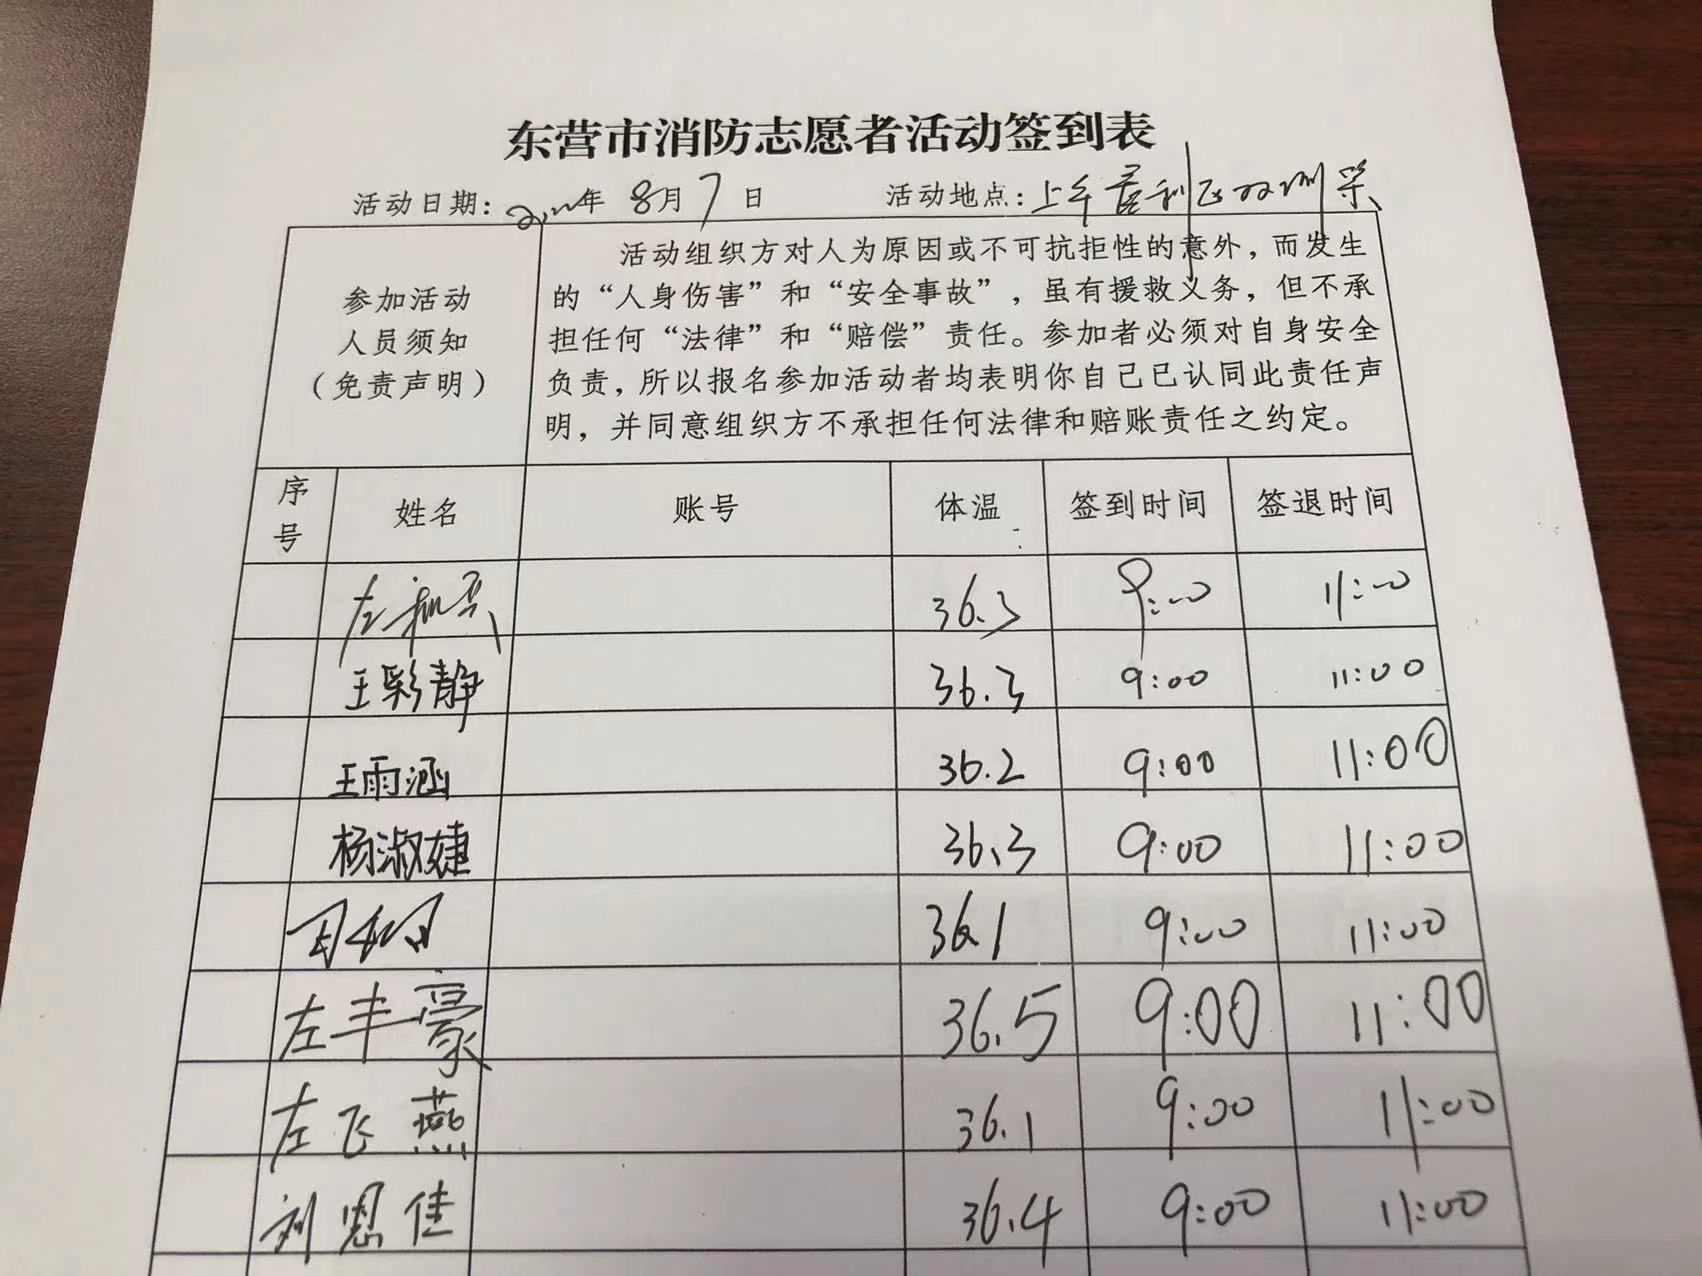 东营市消防志愿者活动签到表
活动日期: 年 8月7日 活动地点:上午 利
参加活动
人员须知
（免责声明）
活动组织方对人为原因或不可抗拒性的意外，而发生
的“人身伤害”和“安全事故”，虽有援救义务，但不承
担任何“法律”和“赔偿”责任。参加者必须对自身安全
负责，所以报名参加活动者均表明你自己已认同此责任声
明，并同意组织方不承担任何法律和赔账责任之约定。
序号 姓名 账号 体温 签到时间 签退时间
左 36.3 9:00 11:00
王彩静 36.3 9:00 11:00
王雨涵 36.2 9:00 11:00
杨淑婕 36.3 9:00 11:00
36.1 9:00 11:00
左丰豪 36.5 9:00 11:00
左飞燕 36.1 9:00 11:00
刘恩佳 36.4 9:00 11:00